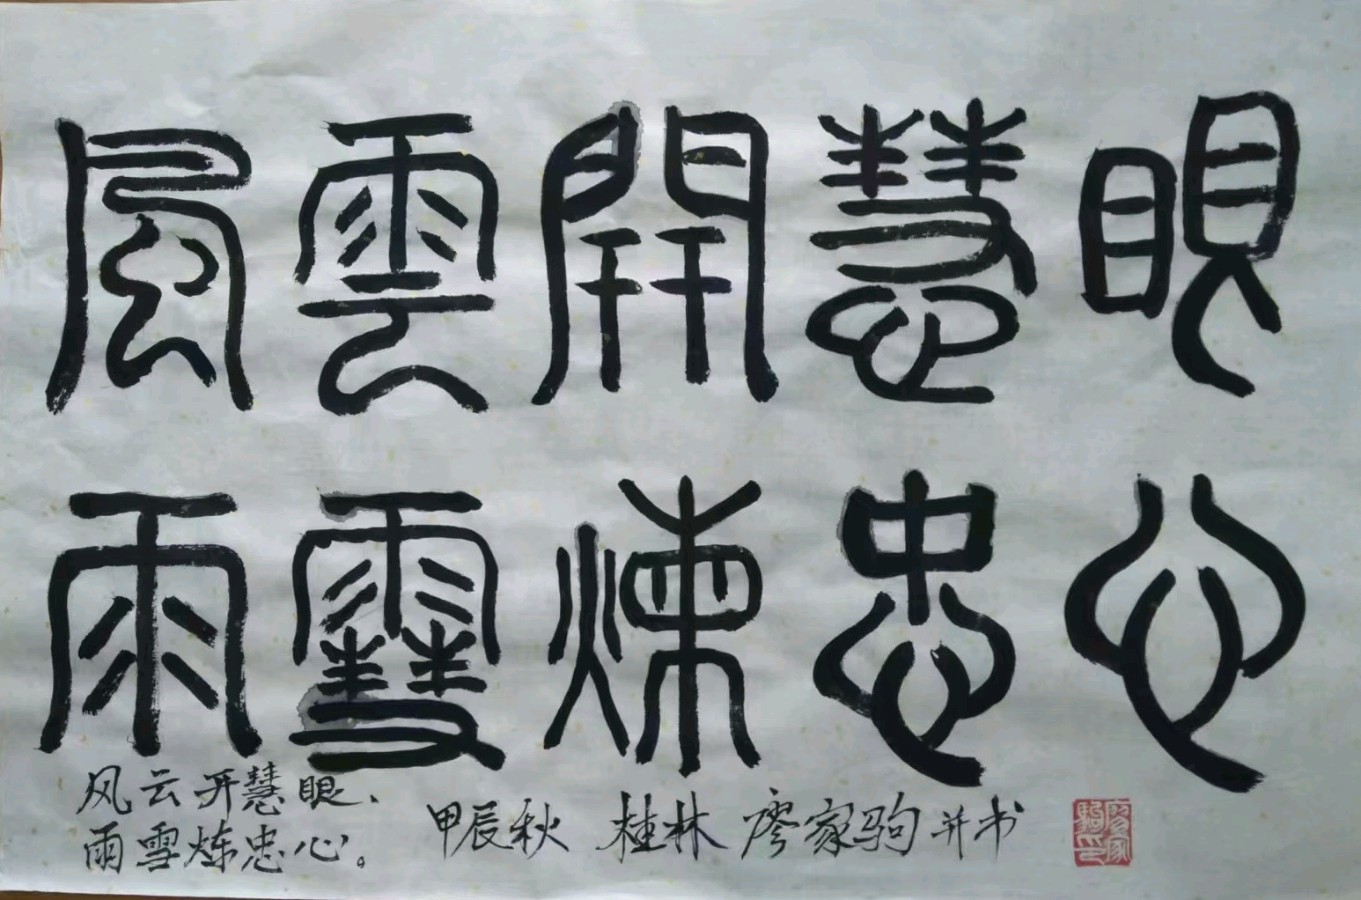 風雲開慧眼
雨雪煉忠心
风云开慧眼、
雨雪炼忠心。
甲辰秋 桂林 廖家驹 并书
廖家駒印